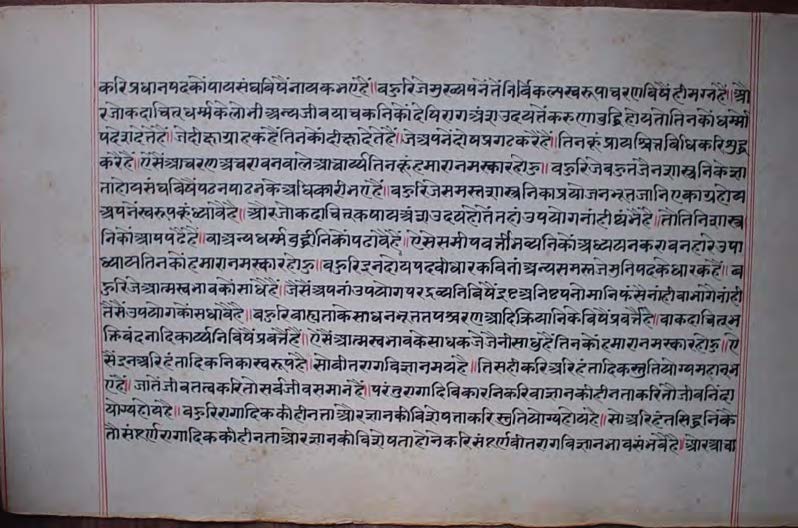 करि प्रधानपदकों पाय संघविषैं नायक भए हैं॥ बहुरि जे मुख्यपनें तें निर्विकल्पस्वरुपाचरणविषैं ही मग्न हैं॥ औ
र जो कदाचित् धर्म्मके लोभी अन्य जीव याचक तिनिकों देषि राग अंश उदय तें करुणाबुद्धि होय तौ तिनिकों धर्म्मो
पदेश देते हैं॥ जे दीक्षाग्राहक हैं तिनकों दीक्षा देते हैं॥ जे अपनें दोष प्रगट करै हैं॥ तिनकूं प्रायश्चित्त विधि करि शुद्ध
करे हैं॥ ऐसें आचरण अचरावनवाले आचार्य्य तिनकूं हमारा नमस्कार होहु॥ बहुरि जे बहुत जैनशास्त्रनिके ज्ञा
ता होय संघविषैं पठनपाठनके अधिकारी भए हैं॥ बहुरि जे समस्त शास्त्रनिका प्रयोजनभूत जानि एकाग्र होय
अपनें स्वरुपकूं ध्यावै है॥ और जो कदाचित् कषाय अंश उदय होतें तहां उपयोग नांही थंभै है॥ तो तिनि शास्त्र
निकों आप पढै हैं॥ वा अन्य धर्म्मबुद्धीनिकों पढावै हैं॥ ऐसे समीपवर्त्ती भव्यनिकों अध्ययन करावनहारे उपा
ध्याय तिनकों हमारा नमस्कार होहु॥ बहुरि इन दोय पदवीधारक विनां अन्य समस्त जे मुनिपदके धारक हैं॥ ब
हुरि जे आत्मस्वभावकों साधै हैं॥ जैसें अपनां उपयोग परद्रव्यनिविषैं इष्ट अनिष्टपनो मानि फंसै नांही वा भागै नांही
तैसैं उपयोगकों सधावै है॥ बहुरि बाह्य ताके साधनभूत तपश्चरण आदि क्रियानिकेविषैं प्रवर्त्तै है॥ वा कदाचित् भ
क्ति वंदनादि कार्य्यनिविषैं प्रवर्त्तै हैं॥ ऐसें आत्मस्वभावके साधक जे जैनी साधु हैं तिनकों हमारा नमस्कार होहु॥ ऐ
सें इन अरिहंतादिकनिका स्वरुप है॥ सो वीतरागविज्ञानमय है॥ तिसही करि अरिहंतादिक स्तुतियोग्य महान् भ
ए हैं॥ जातें जीवतत्वकरि तो सर्व जीव समान हैं॥ परंतु रागादिविकारनिकरि वा ज्ञानकी हीनता करि तौ जीव निंदा
योग्य हो य है॥ बहुरि रागादिककी हीनता और ज्ञानकी विशेषताकरि स्तुतियोग्य हो य है॥ सो अरिहंत सिद्धनिकै
तौ संपूर्ण रागादिककी हीनता और ज्ञानकी विशेषता होनेकरि संपूर्ण वीतरागविज्ञानभाव संभवै है॥ और आचा